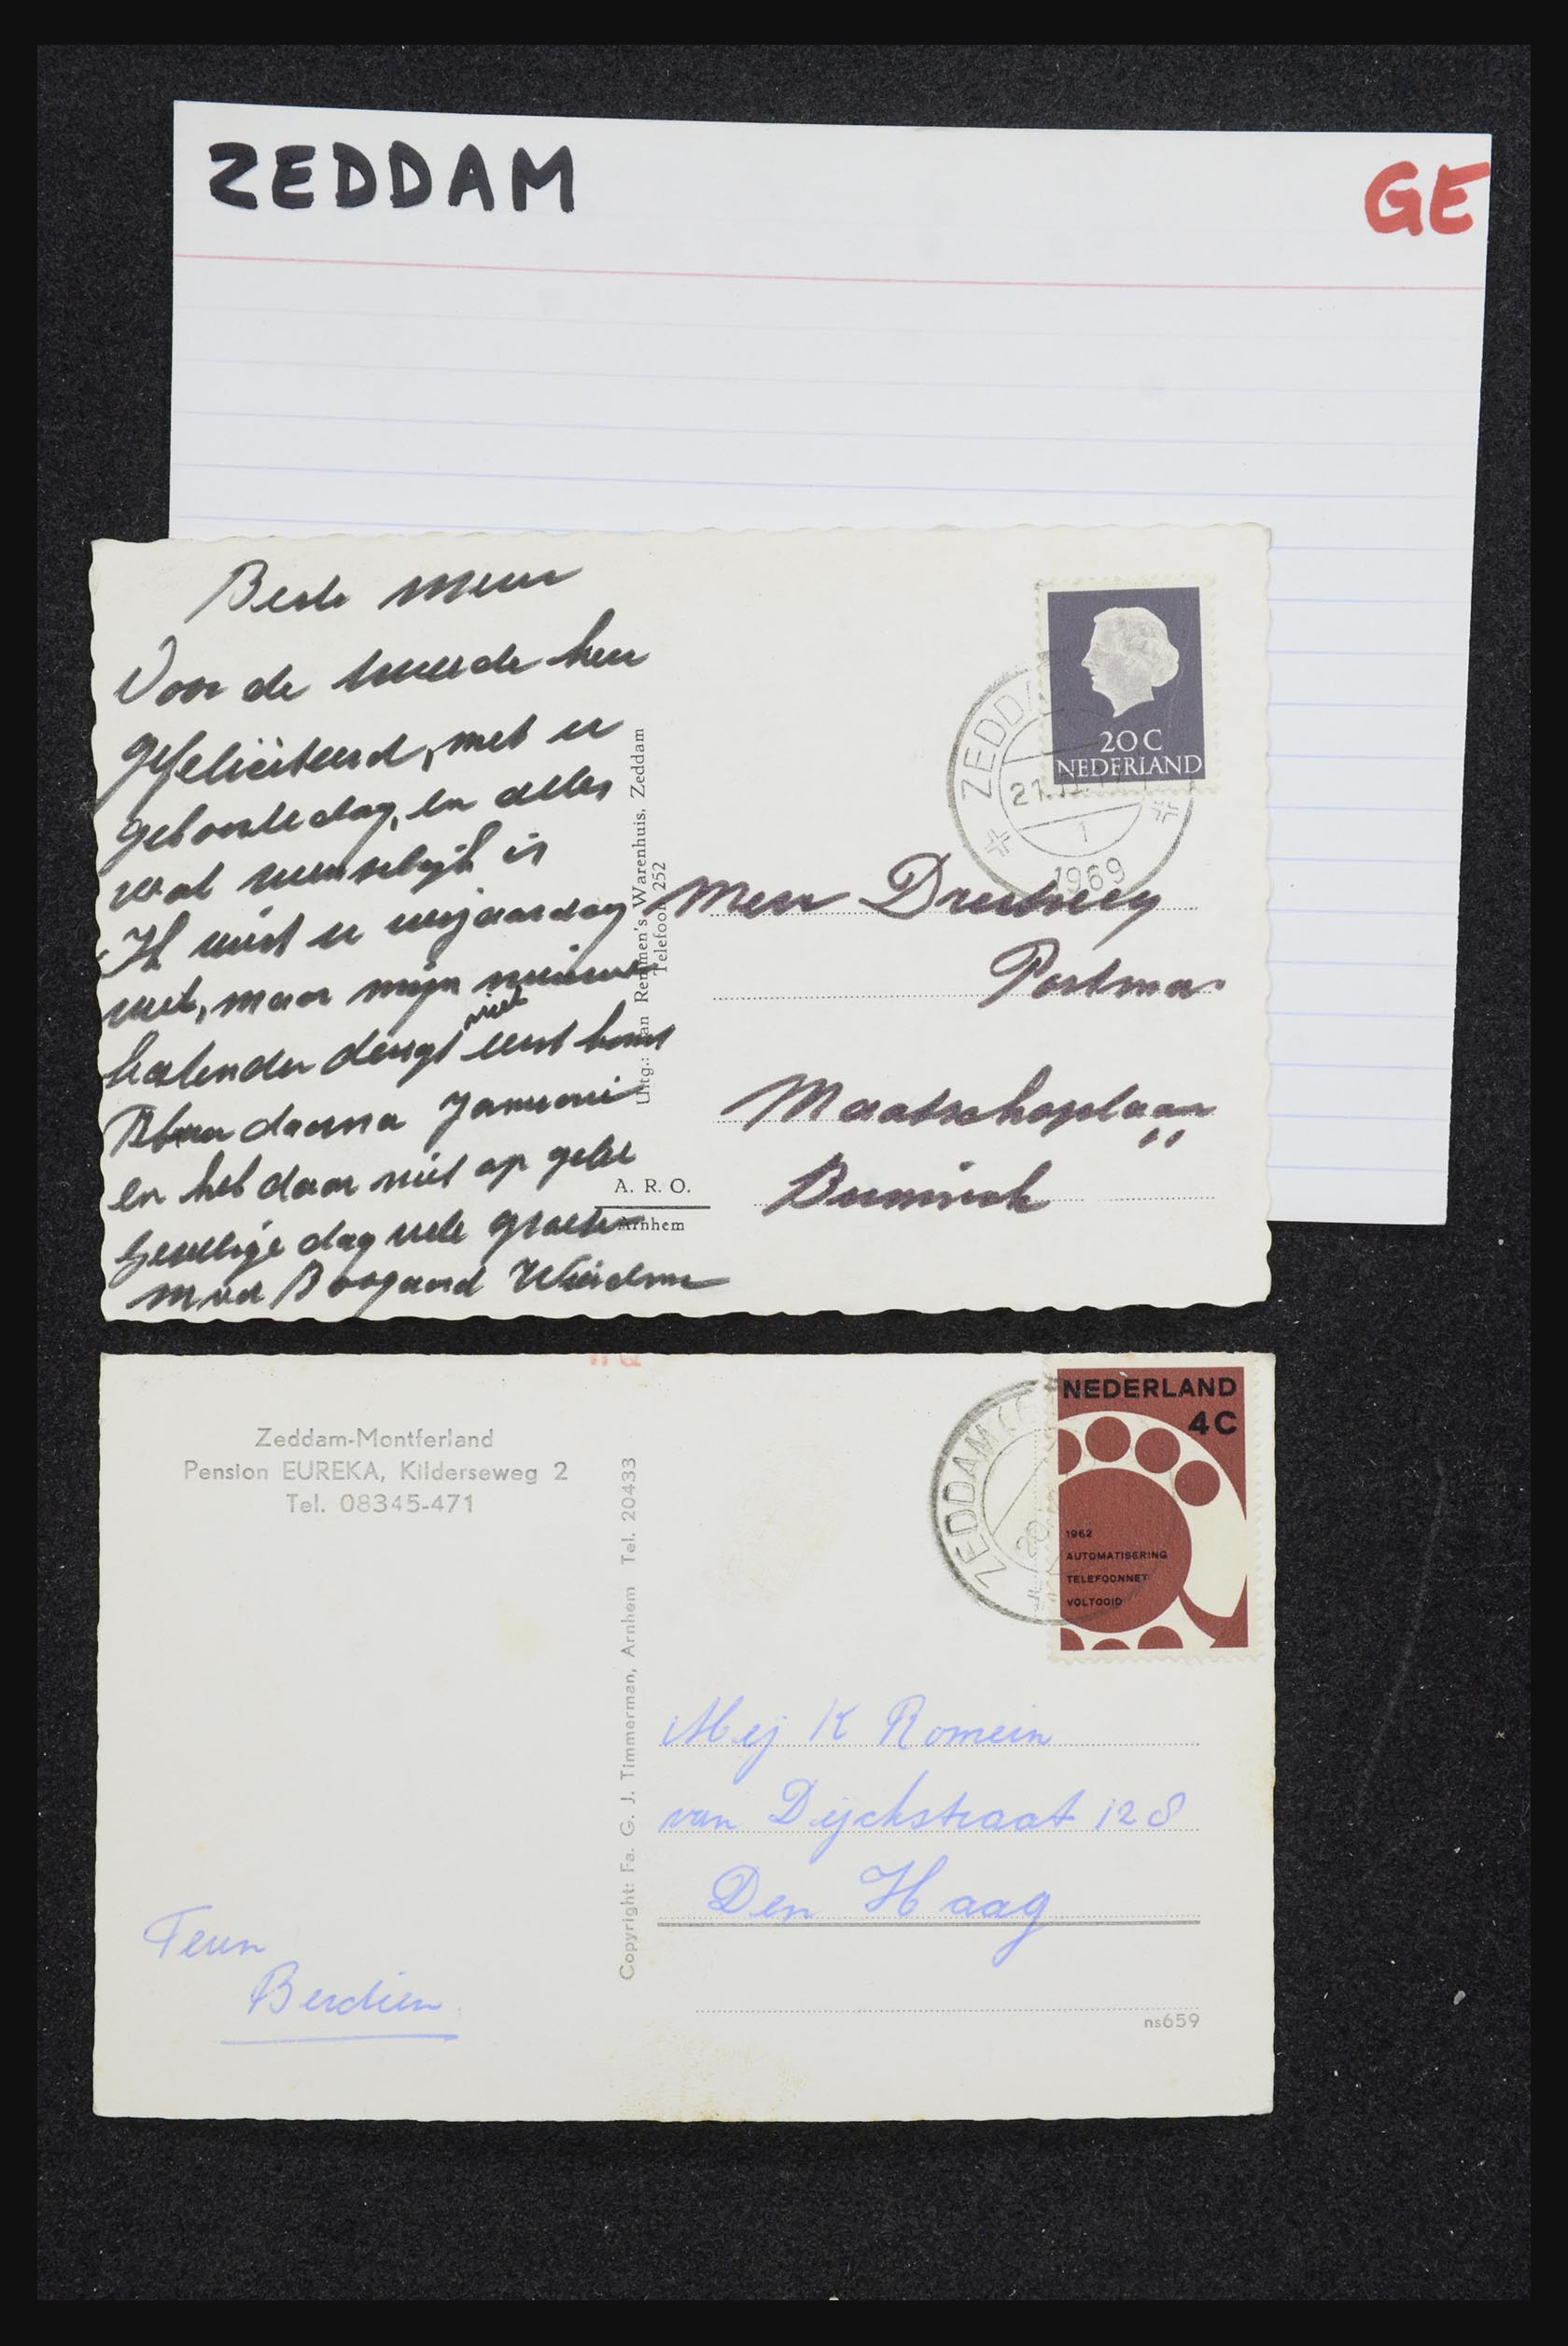 ZEDDAM
GE
Beste
Voor de tweede keer
gefeliciteerd, met u
geboortedag, en alles
wat wenselijk is
Ik wist u verjaardag
wel, maar mijn nieuwe
niet
kalender
daarna Januari
en heb daar niet op gelet
Gezellige dag vele groeten
Boogaard
Uitg.: van Remmen's Warenhuis, Zeddam
Telefoon 252
A. R. O.
Arnhem
20 C
NEDERLAND
ZEDDA
21.
1
1969
Postma
Maatschaplaan
Zeddam-Montferland
Pension EUREKA, Kilderseweg 2
Tel. 08345-471
Teun
Berdien
Copyright: Fa. G. J. Timmerman, Arnhem Tel. 20433
NEDERLAND
4C
1962
AUTOMATISERING
TELEFOONNET
VOLTOOID
ZEDDAM
20
Mej K Romein
van Dijckstraat 128
Den Haag
ns659